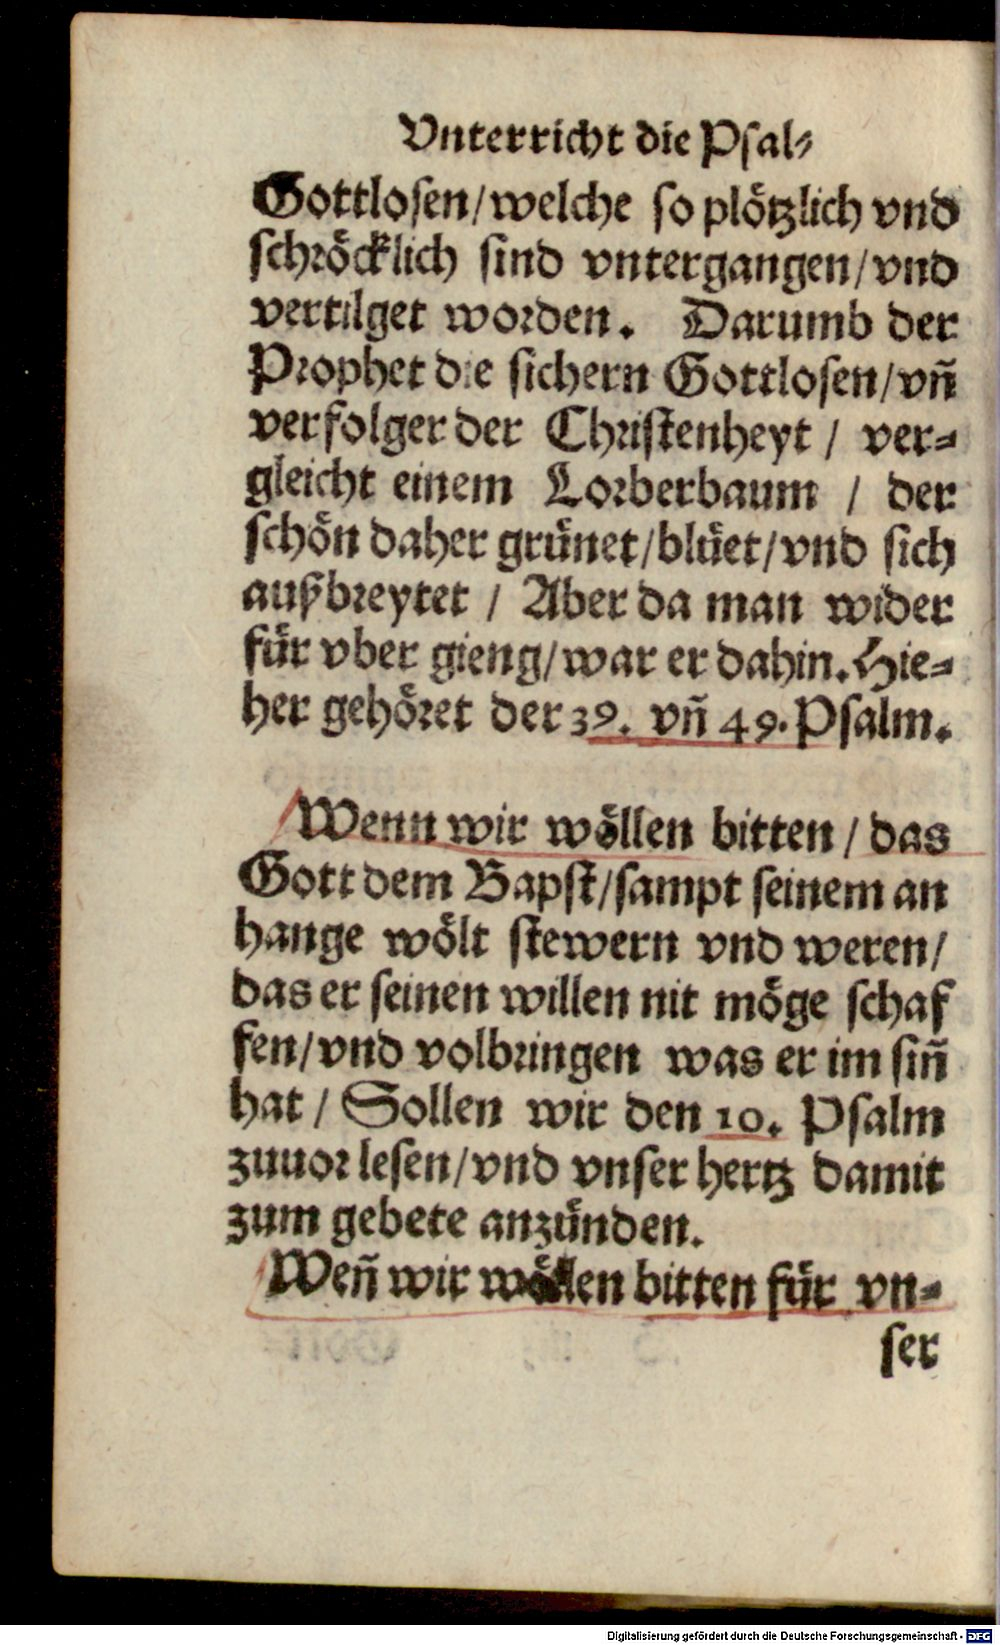 Vnterricht die Psal⸗
Gottlosen/welche so plötzlich vnd
schröcklich sind vntergangen/vnd
vertilget worden. Darumb der
Prophet die sichern Gottlosen/vñ
verfolger der Christenheyt / ver⸗
gleicht einem Lorberbaum / der
schön daher grünet/blüet/vnd sich
außbreytet / Aber da man wider
für vber gieng/war er dahin. Hie⸗
her gehöret der 39. vñ 49. Psalm.
Wenn wir wöllen bitten / das
Gott dem Bapst/sampt seinem an
hange wölt stewern vnd weren/
das er seinen willen nit möge schaf
fen/vnd volbringen was er im siñ
hat / Sollen wir den 10. Psalm
zuuor lesen/vnd vnser hertz damit
zum gebete anzünden.
Weñ wir wöllen bitten für vn⸗
ser
Digitalisierung gefördert durch die Deutsche Forschungsgemeinschaft - DFG